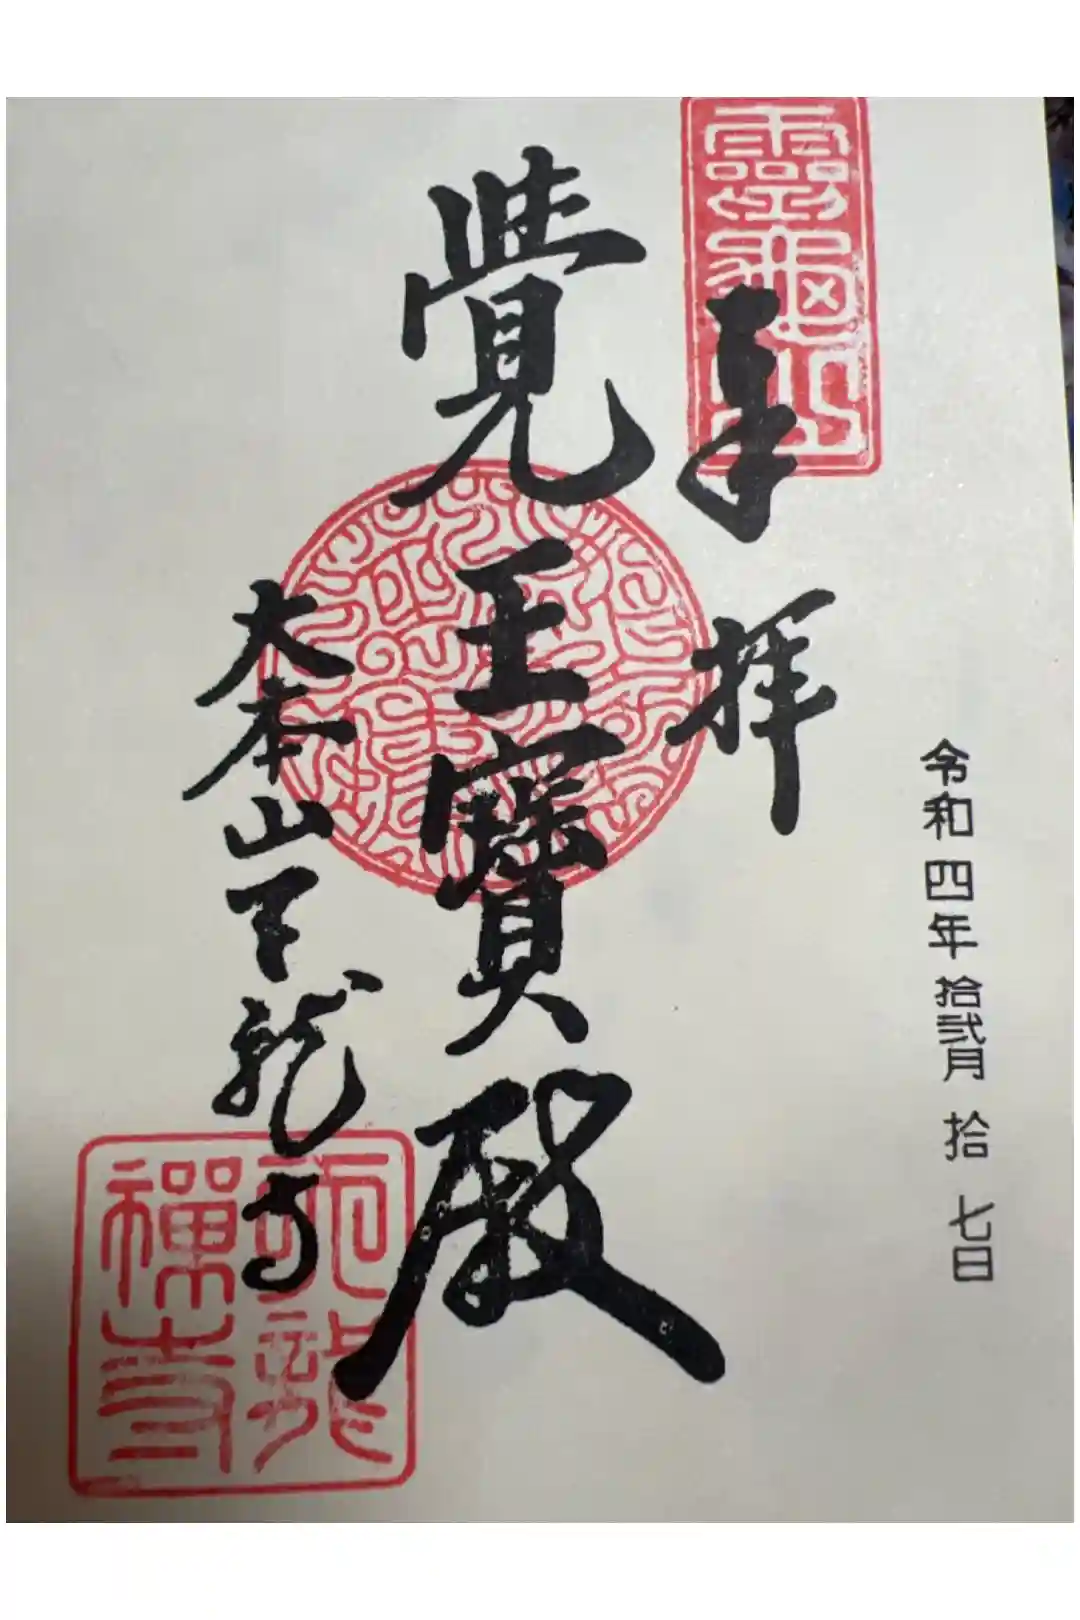 令和四年拾弐月拾七日
奉拝
靈龜山
覺王寶殿
大本山天龍寺
天龍禅寺